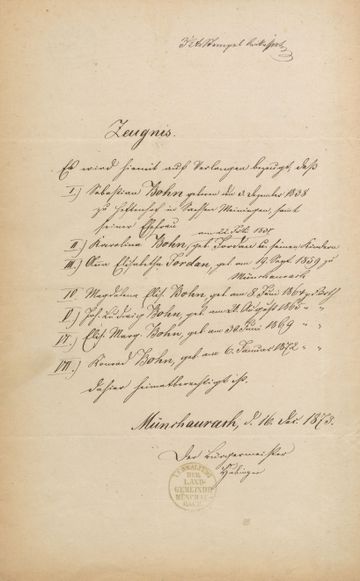 Zeugnis.
Es wird hiemit auf Verlangen bezeugt, daß
I.) Sebastian Bohn geboren den Dezember 1838
zu in Sachsen Meiningen, samt
seiner Ehefrau
am 22. Febr.
II.) Karolina Bohn, geb. Jordan & seinen Kindern
III.) Elisabetha Jordan, geb. am 19. Sept. 1859 zu
Münchaurach
IV. Magdalena Elis. Bohn, geb. am 8. Juni
V.) Joh. Ludwig Bohn, geb. am 21. August " "
VI.) Elis. Marg. Bohn, geb. am 30. Juni 1869 " "
VII.) Konrad Bohn, geb. am 6. Januar 1872 " "
dahier heimatberechtigt ist.
Münchaurach, d. 16. Dez. 1873.
Der Bürgermeister
VERWALTUNG
DER
LAND-
GEMEINDE
MÜNCHAU-
RACH